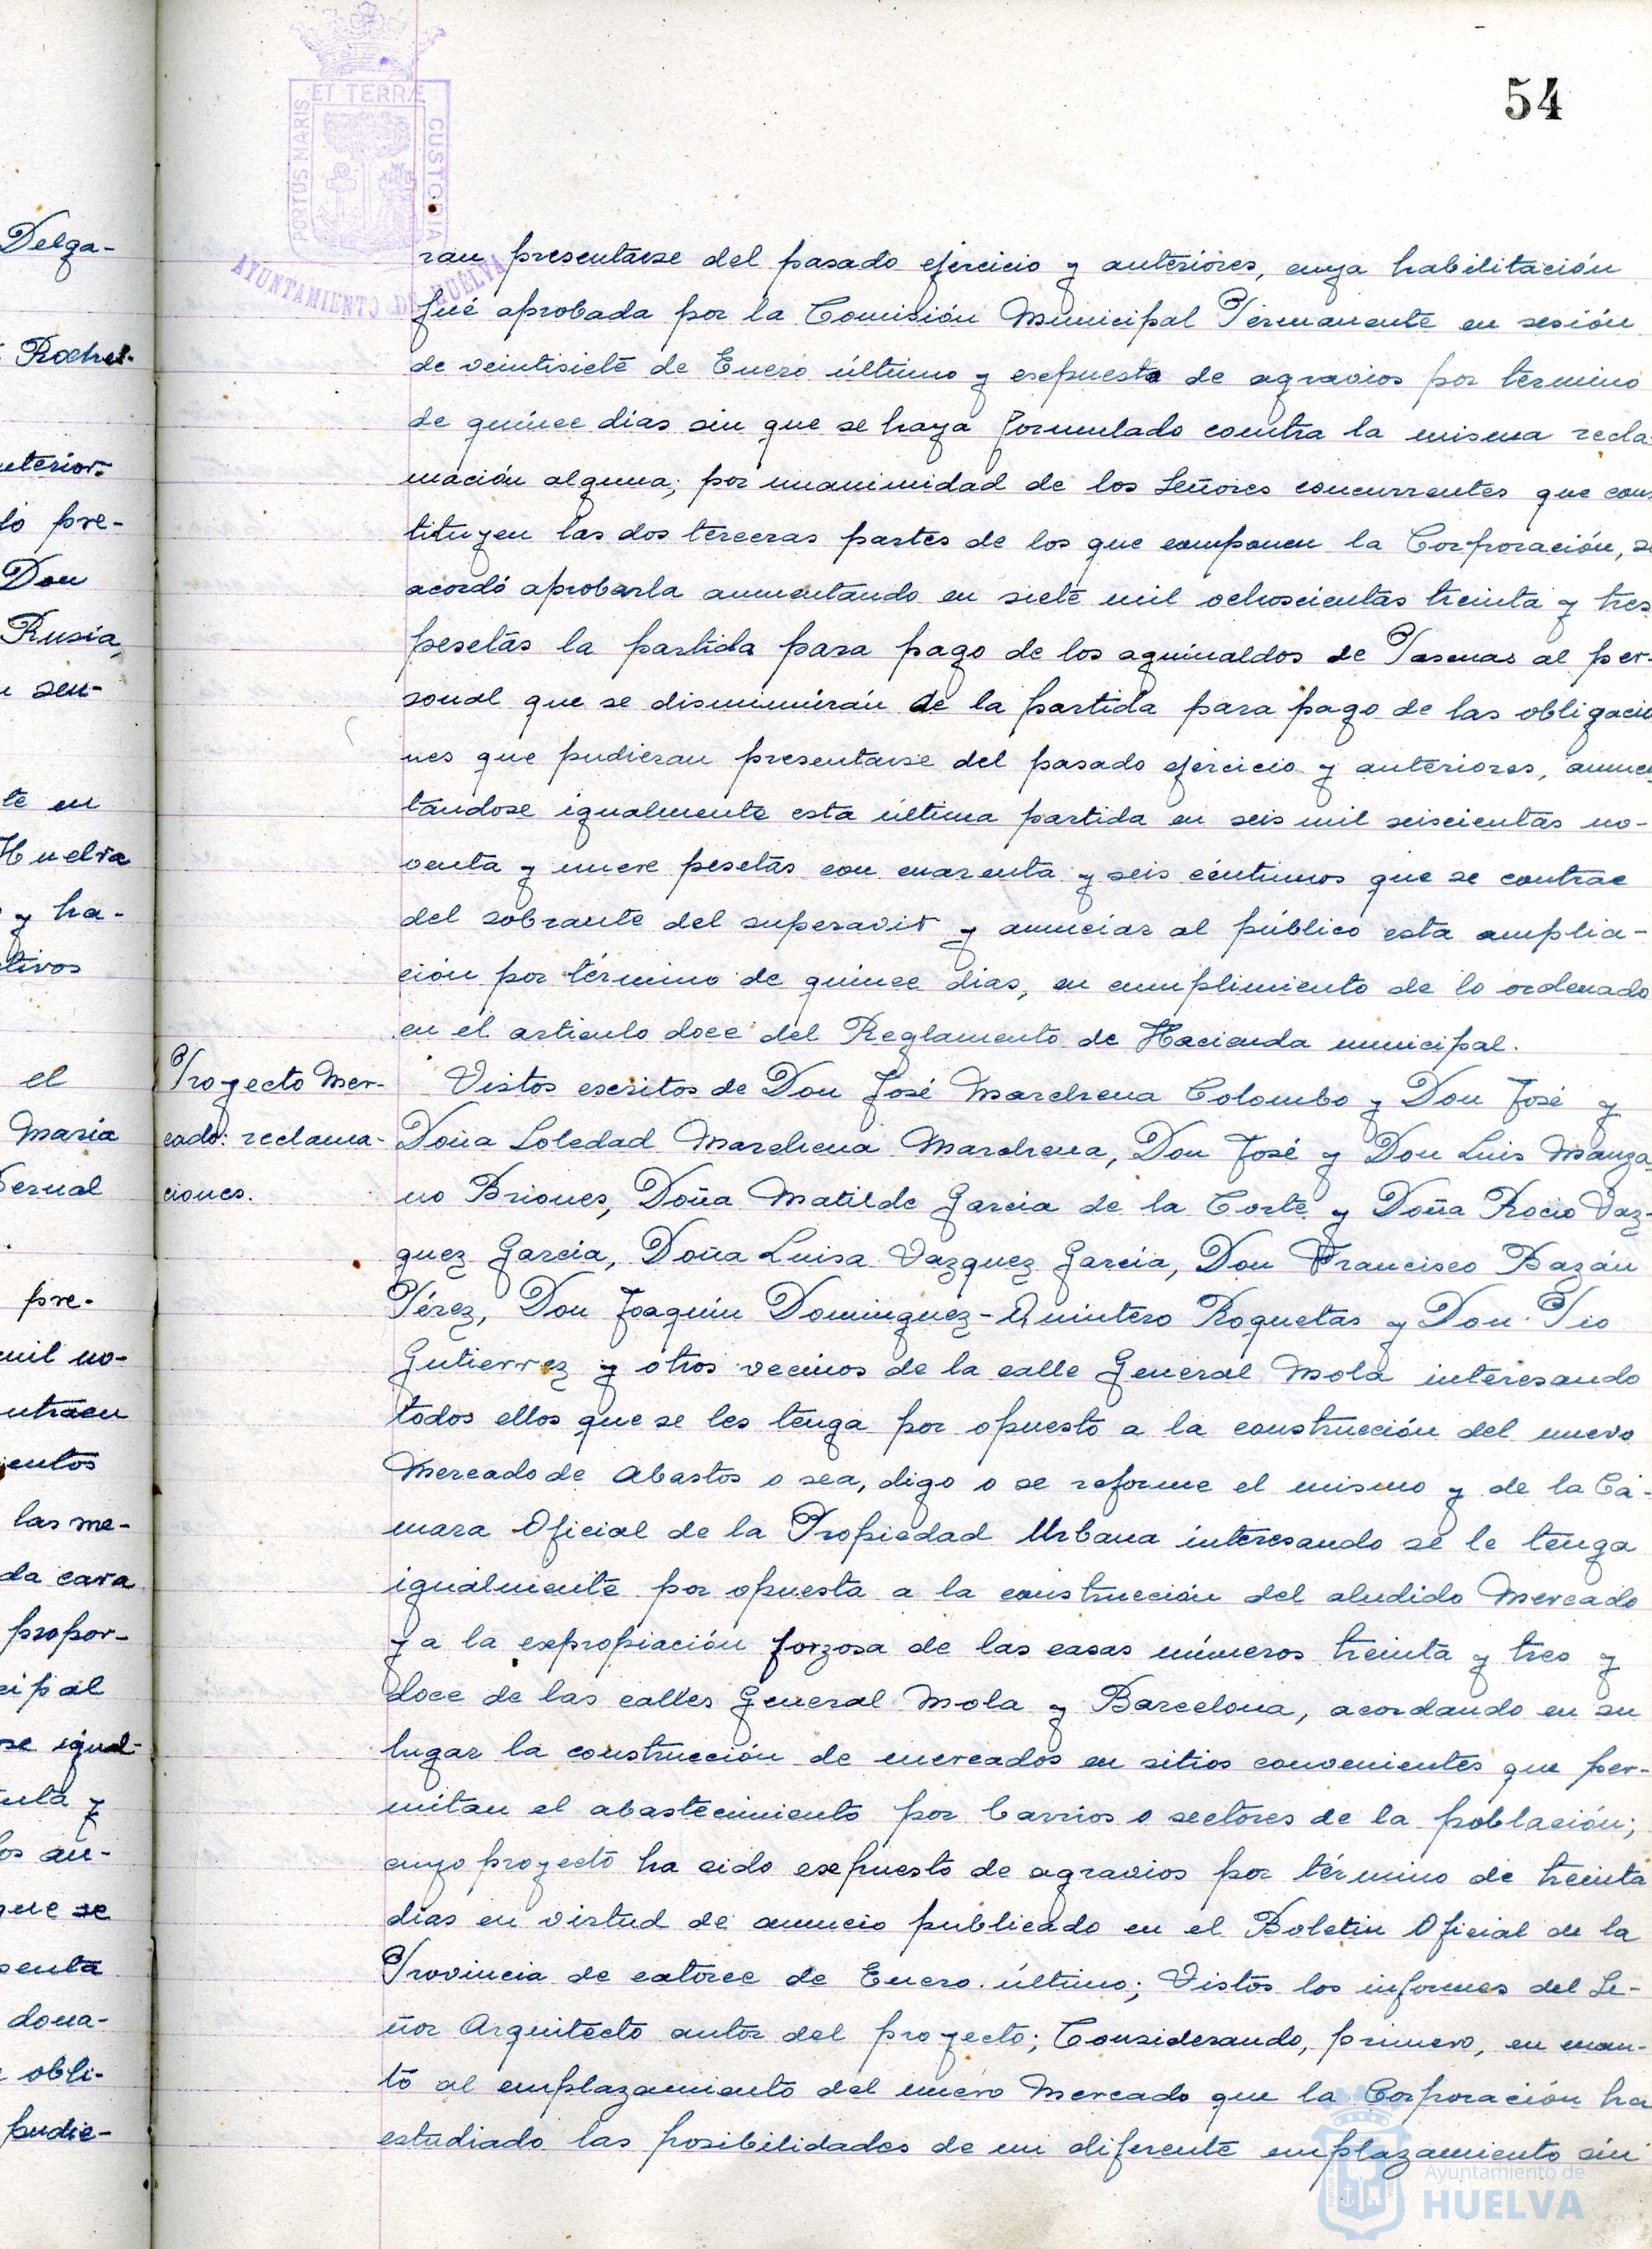 54
PORTUS MARIS
ET TERRÆ
CUSTODIA
AYUNTAMIENTO DE HUELVA
Delga-
Rochel.
nterior-
lo pre-
Don
Rusia,
n seu-
te en
Huelva
y ha-
tivos
el
Maria
Bernal
pre-
mil no-
ntraen
ientos
las me-
da cara
propor-
cipal
se igual-
nta y
os au-
que se
senta
dona-
obli-
pudie-
ran presentarse del pasado ejercicio y anteriores, cuya habilitación
fué aprobada por la Comisión Municipal Permanente en sesión
de veintisiete de Enero último y expuesta de agravios por termino
de quince dias sin que se haya formulado contra la misma recla-
mación alguna; por unanimidad de los Señores concurrentes que cons
tituyen las dos terceras partes de los que componen la Corporación, se
acordó aprobarla aumentando en siete mil ochocientas treinta y tres
pesetas la partida para pago de los aguinaldos de Pascuas al per-
sonal que se disminuirán de la partida para pago de las obligacio
nes que pudieran presentarse del pasado ejercicio y anteriores, aumen
tándose igualmente esta última partida en seis mil seiscientas no-
venta y nueve pesetas con cuarenta y seis céntimos que se contrae
del sobrante del superavit y anunciar al público esta amplia-
ción por término de quince dias, en cumplimiento de lo ordenado
en el articulo doce del Reglamento de Hacienda municipal.
Proyecto Mer-
cado: reclama-
ciones.
Vistos escritos de Don José Marchena Colombo y Don José y
Doña Soledad Marchena Marchena, Don José y Don Luis Manza
no Briones, Doña Matilde Garcia de la Corte y Doña Rocio Vaz-
quez Garcia, Doña Luisa Vazquez Garcia, Don Francisco Bazán
Pérez, Don Joaquin Dominguez-Quintero Roquetas y Don Pio
Gutierrez y otros vecinos de la calle General Mola interesando
todos ellos que se les tenga por opuesto a la construcción del nuevo
Mercado de Abastos o sea, digo o se reforme el mismo y de la Cá-
mara Oficial de la Propiedad Urbana interesando se le tenga
igualmente por opuesta a la construcción del aludido Mercado
y a la expropiación forzosa de las casas números treinta y tres y
doce de las calles General Mola y Barcelona, acordando en su
lugar la construcción de mercados en sitios convenientes que per-
mitan el abastecimiento por barrios o sectores de la población;
cuyo proyecto ha sido expuesto de agravios por término de treinta
dias en virtud de anuncio publicado en el Boletin Oficial de la
Provincia de catorce de Enero último; Vistos los informes del Se-
ñor Arquitecto autor del proyecto; Considerando, primero, en cuan-
to al emplazamiento del nuevo Mercado que la Corporación ha
estudiado las posibilidades de un diferente emplazamiento sin
Ayuntamiento de
HUELVA